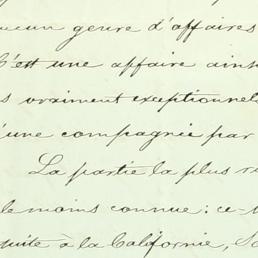 aucun genre d'affaires
C'est une affaire ains
s vraiment exceptionnels
'une compagnie par
La partie la plus r
le moins connue: ce-
quite à la Californie, So